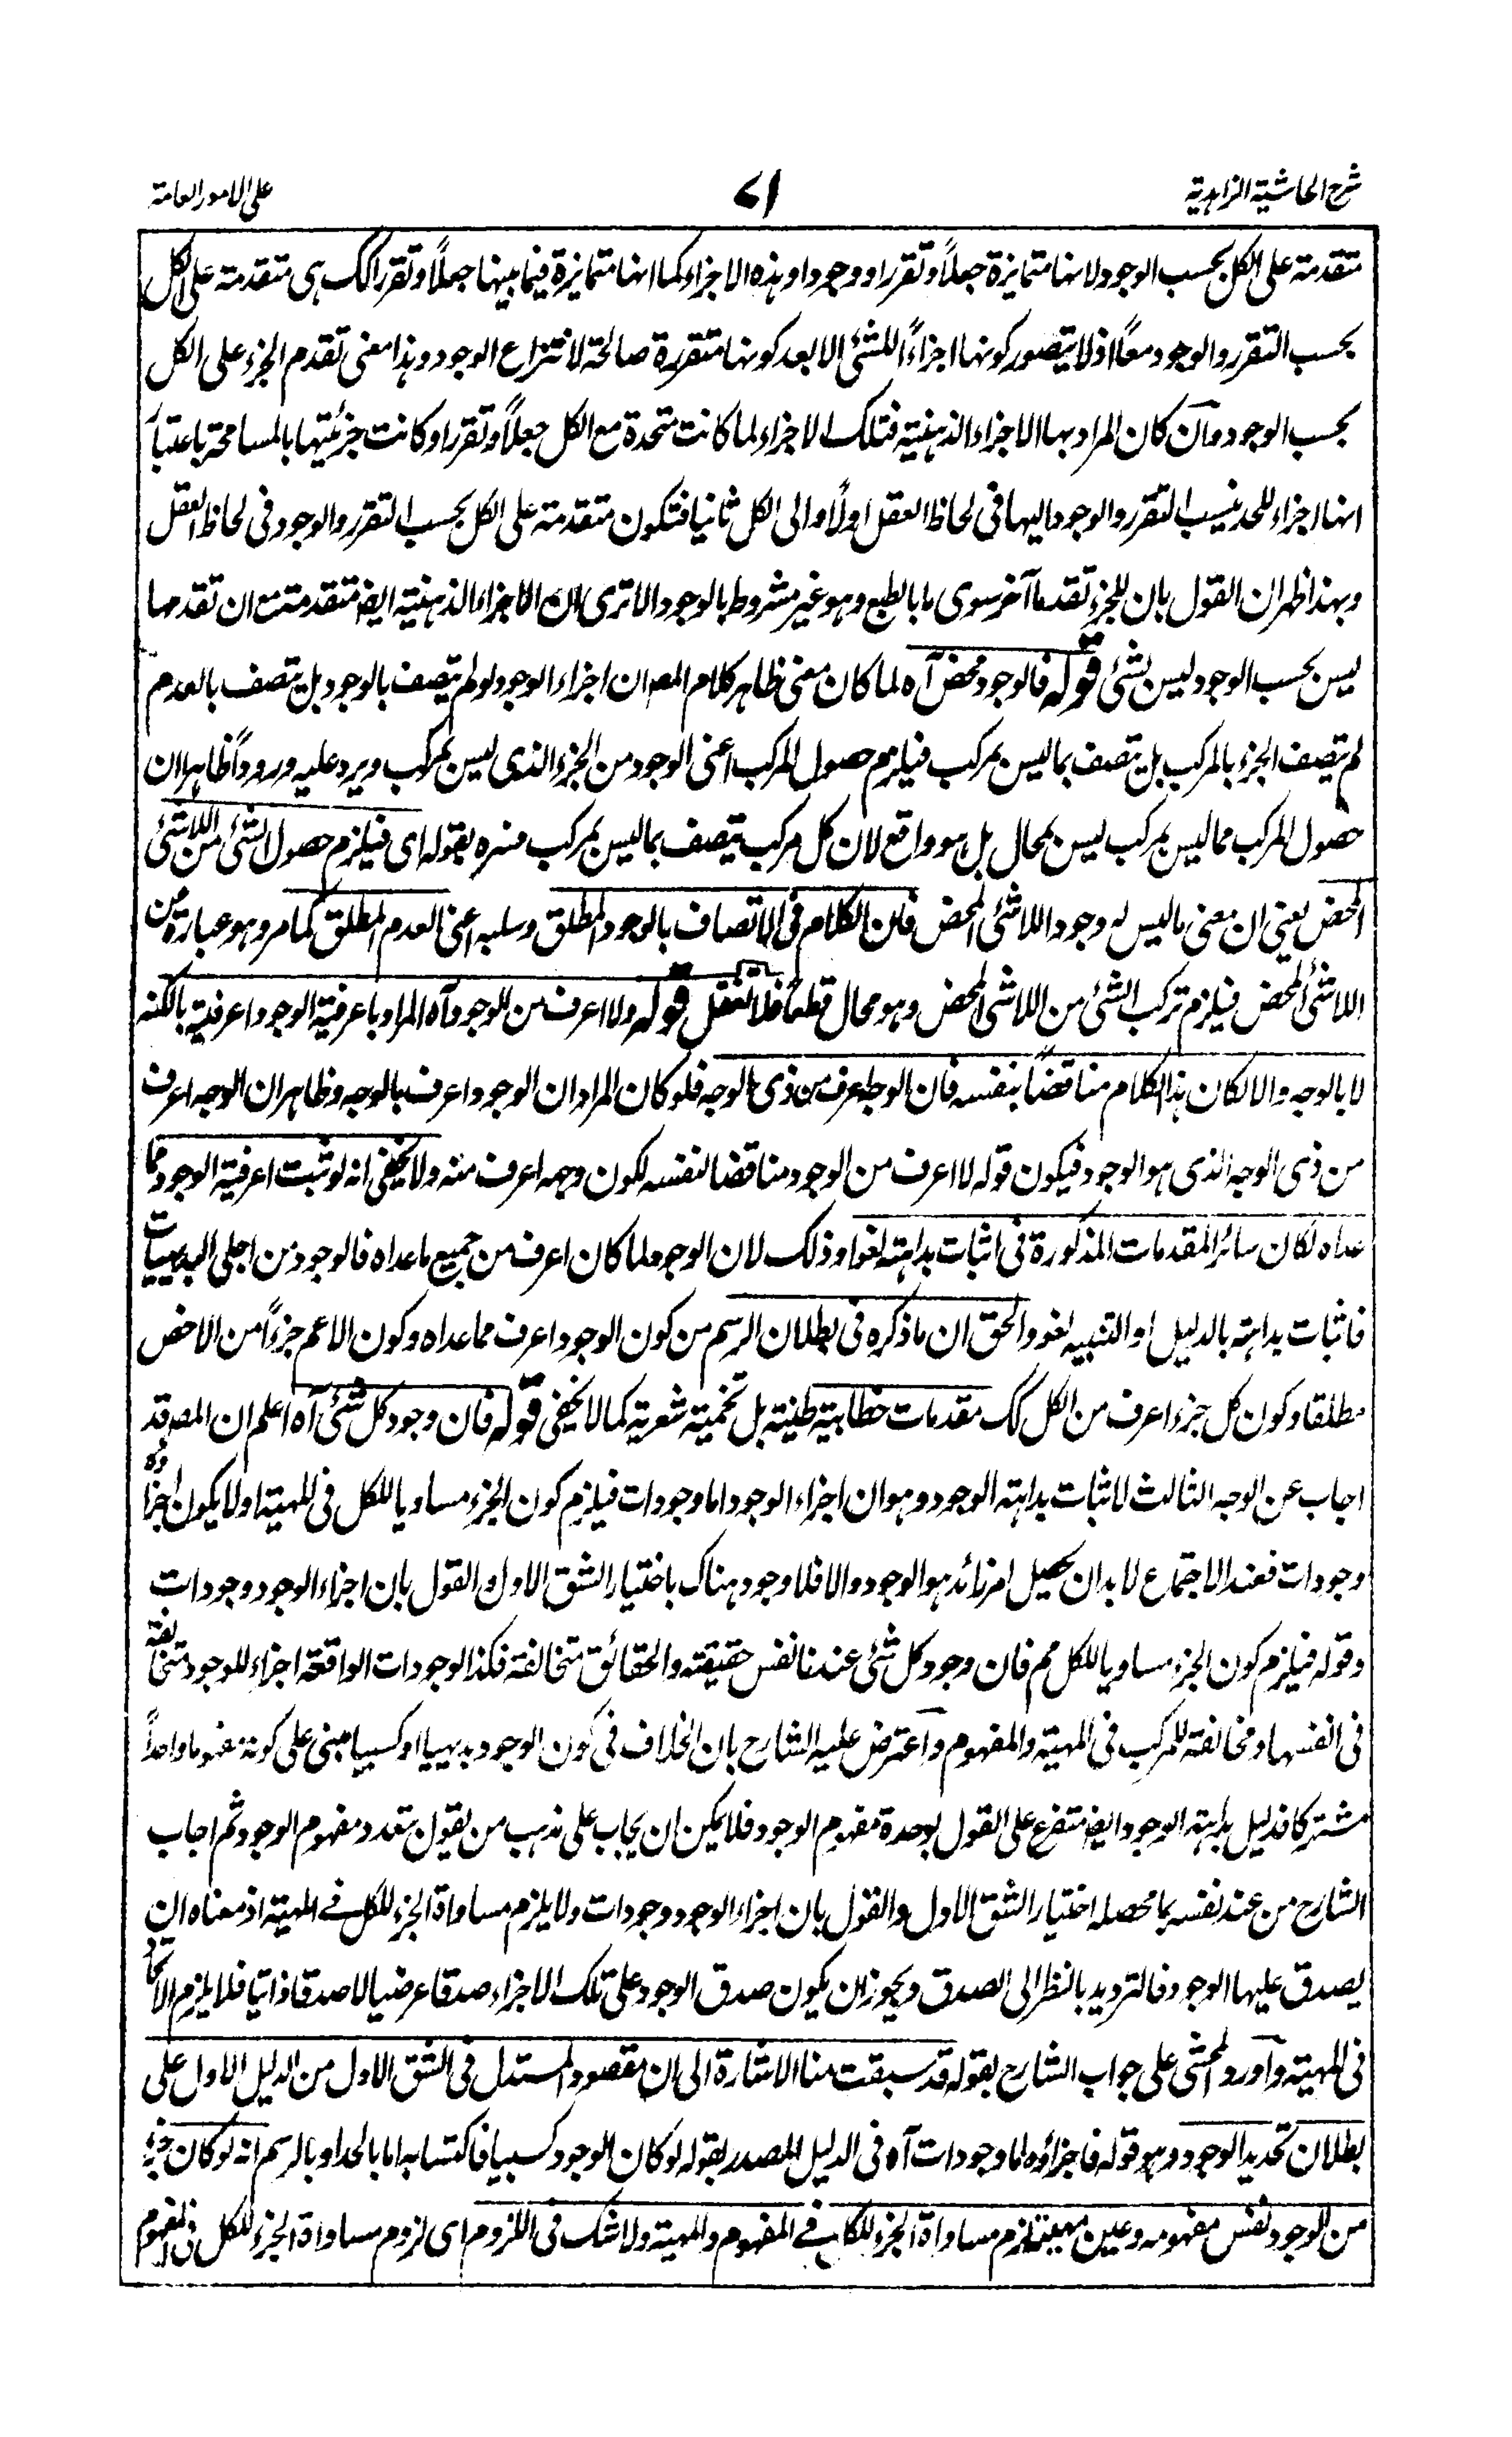 شرح الحاشية الزاهدية
٧١
على الامور العامة
متقدمة على الكل بحسب الوجود لانها متمايزة جعلاً وتقررا ووجودا وهذه الاجزاء كما انها متمايزة فيما بينها جعلاً وتقررا كك هى متقدمة على الكل
بحسب التقرر والوجود معاً اذ لا يتصور كونها اجزاءً للشئ الا بعد كونها متقررة صالحة لانتزاع الوجود وهذا معنى تقدم الجزء على الكل
بحسب الوجود وآن كان المراد بها الاجزاء الذهنية فتلك الاجزاء لما كانت متحدة مع الكل جعلاً وتقررا وكانت جزئيتها بالمسامحة باعتبار
انها اجزاء للحد ينسب التقرر والوجود اليها فى لحاظ العقل اولاً والى الكل ثانيا فتكون متقدمة على الكل بحسب التقرر والوجود فى لحاظ العقل
وبهذا ظهر ان القول بان للجزء تقدما آخر سوى ما بالطبع وهو غير مشروط بالوجود الا ترى ان الاجزاء الذهنية ايضا متقدمة مع ان تقدمها
ليس بحسب الوجود ليس بشئ قوله فالوجود محض آه لما كان معنى ظاهر كلام المصـ ان اجزاء الوجود لو لم يتصف بالوجود بل يتصف بالعدم
لم يتصف الجزء بالمركب بل يتصف بما ليس بمركب فيلزم حصول المركب اعنى الوجود من الجزء الذى ليس بمركب ويرد عليه وروداً ظاهرا ان
حصول المركب مما ليس بمركب ليس بمحال بل هو واقع لان كل مركب يتصف بما ليس بمركب فسره بقوله اى فيلزم حصول الشئ من اللاشئ
المحض يعنى ان معنى ما ليس له وجود اللاشئ المحض فان الكلام فى الاتصاف بالوجود المطلق وسلبه اعنى العدم المطلق كما مر وهو عبارة عن
اللاشئ المحض فيلزم تركب الشئ من اللاشئ المحض وهو محال قطعاً فلا تغفل قوله ولا اعرف من الوجود آه المراد باعرفية الوجود اعرفية بالكنه
لا بالوجه والا لكان هذا الكلام مناقضاً بنفسه فان الوجه اعرف من ذى الوجه فلو كان المراد ان الوجود اعرف بالوجه وظاهر ان الوجه اعرف
من ذى الوجه الذى هو الوجود فيكون قوله لا اعرف من الوجود مناقضا لنفسه لكون وجهه اعرف منه ولا يخفى انه لو ثبت اعرفية الوجود مما
عداه لكان سائر المقدمات المذكورة فى اثبات بداهته لغوا وذلك لان الوجود لما كان اعرف من جميع ما عداه فالوجود من اجلى البديهيات
فاثبات بداهته بالدليل او التنبيه لغو والحق ان ما ذكره فى بطلان الرسم من كون الوجود اعرف مما عداه وكون الاعم جزءاً من الاخص
مطلقا وكون كل جزء اعرف من الكل كك مقدمات خطابية ظنية بل تخمية شعرية كما لا يخفى قوله فان وجود كل شئ آه اعلم ان المصـ قد
اجاب عن الوجه الثالث لاثبات بداهة الوجود وهو ان اجزاء الوجود اما وجودات فيلزم كون الجزء مساويا للكل فى المهية او لا يكون اجزاؤه
وجودات فعند الاجتماع لا بد ان يحصل امر زائد هو الوجود والا فلا وجود هناك باختيار الشق الاول والقول بان اجزاء الوجود وجودات
وقوله فيلزم كون الجزء مساويا للكل مم فان وجود كل شئ عندنا نفس حقيقته والحقائق متخالفة فكذا الوجودات الواقعة اجزاء للوجود متخالفة
فى انفسها ومخالفة للمركب فى المهية والمفهوم وآعترض عليه الشارح بان الخلاف فى كون الوجود بديهيا او كسبيا مبنى على كونه مفهوما واحداً
مشتركا فدليل بداهة الوجود ايضا متفرع على القول بوحدة مفهوم الوجود فلا يمكن ان يجاب على مذهب من يقول بتعدد مفهوم الوجود ثم اجاب
الشارح من عند نفسه بما محصله اختيار الشق الاول والقول بان اجزاء الوجود وجودات ولا يلزم مساواة الجزء للكل فى المهية اذ معناه ان
يصدق عليها الوجود فالترديد بالنظر الى الصدق ويجوز ان يكون صدق الوجود على تلك الاجزاء صدقا عرضيا لا صدقا ذاتيا فلا يلزم الاتحاد
فى المهية وآورد المحشى على جواب الشارح بقوله قد سبقت منا الاشارة الى ان مقصود المستدل فى الشق الاول من الدليل الاول على
بطلان تحديد الوجود وهو قوله فاجزاؤه اما وجودات آه فى الدليل المصدر بقوله لو كان الوجود كسبيا فاكتسابه اما بالحد او بالرسم انه لو كان جزء
من الوجود نفس مفهومه وعين مهيته لزم مساواة الجزء للكل فى المفهوم والمهية ولا شك فى اللزوم اى لزوم مساواة الجزء للكل فى المفهوم